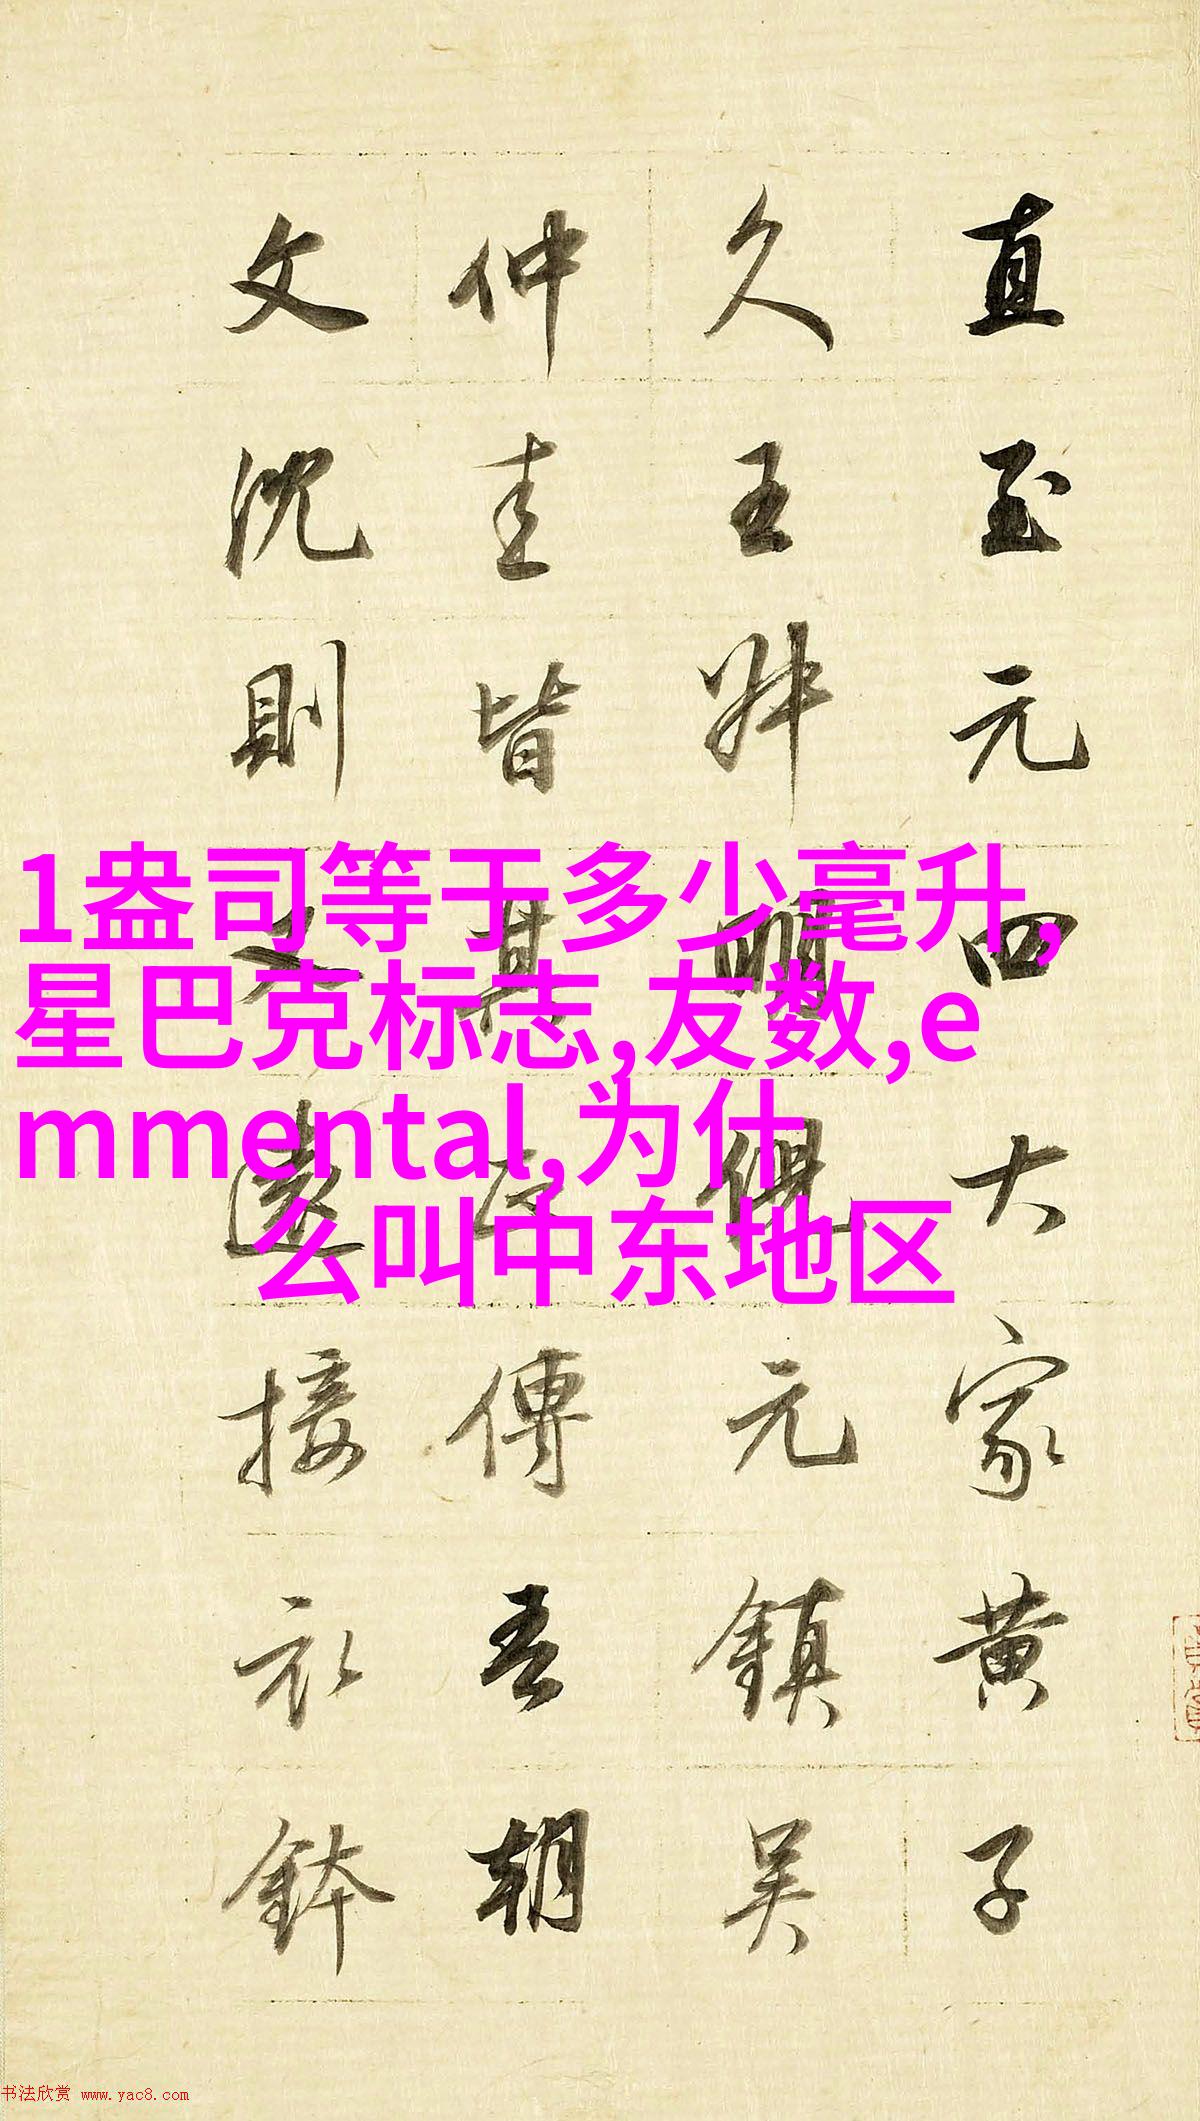 直至元四大家黃子
久王叔明倪元鎮吳
仲圭皆其正傳吾朝
文沈則又遠接衣鉢
1盎司等于多少毫升,
星巴克标志,友数,e
mmental,为什
么叫中东地区
书法欣赏 www.yac8.com